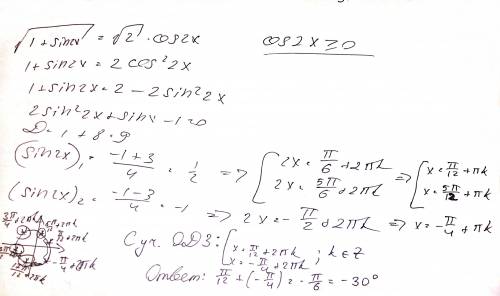 √(1 + sin2x) = √2 · cos2x     cos2x ≥ 0
1 + sin2x = 2 cos²2x
1 + sin2x = 2 - 2sin²2x
2sin²2x + sin - 1 = 0
D = 1 + 8 = 9
(sin2x)₁ = (-1+3)/4 = 1/2 => [ 2x = π/6 + 2πk => [ x = π/12 + πk
2x = 5π/6 + 2πk     x = 5π/12 + πk
(sin2x)₂ = (-1-3)/4 = -1 => 2x = -π/2 + 2πk => x = -π/4 + πk
С уч. ОДЗ: [ x = π/12 + 2πk ; k ∈ Z
x = -π/4 + 2πk
Ответ: π/12 + (-π/4) = -π/6 = -30°